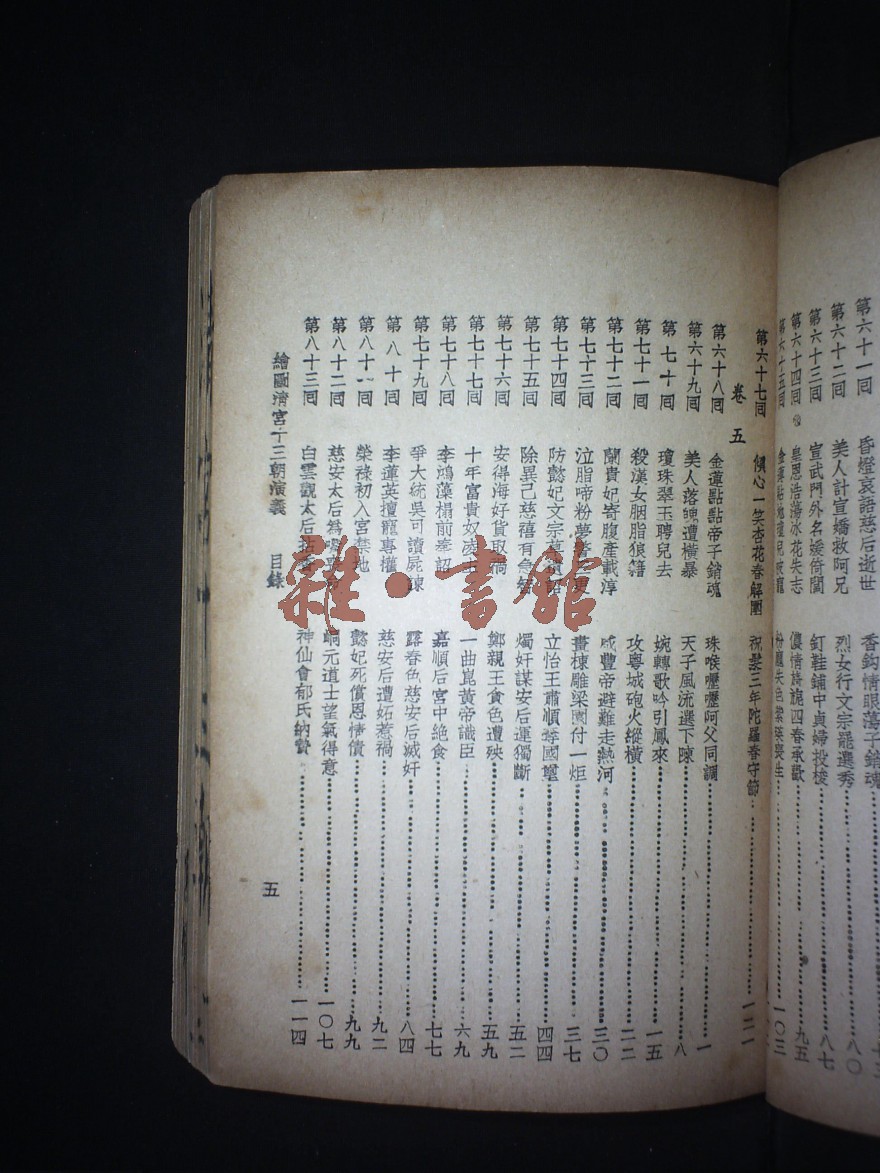 第六十一回 昏燈哀語慈后逝世 香鈎情眼蕩子銷魂
第六十二回 美人計宣嬌救阿兄 烈女行文宗罷選秀 八〇
第六十三回 宣武門外名媛倚閭 釘鞋鋪中貞婦投梭 八七
第六十四回 皇恩浩蕩冰花失志 儂情旖旎四春承歡 九五
第六十五回 一〇三
第六十七回 傾心一笑杏花春解圍 祝髮三年陀羅春守節 一二一
卷五
第六十八回 金蓮點點帝子銷魂 珠喉嚦嚦阿父同調 一
第六十九回 美人落魄遭橫暴 天子風流選下陳 八
第七十回 瓊珠翠玉聘兒去 婉轉歌吟引鳳來 一五
第七十一回 殺漢女胭脂狼籍 攻粵城砲火縱橫 二二
第七十二回 蘭貴妃寄腹產載淳 咸豐帝避難走熱河 三〇
第七十三回 泣脂啼粉夢 畫棟雕梁園付一炬 三七
第七十四回 防懿妃文宗 立怡王肅順尋國璽 四四
第七十五回 除異己慈禧有急智 燭奸謀安后運獨斷 五二
第七十六回 安得海好貨取禍 鄭親王貪色遭殃 五九
第七十七回 十年富貴奴 一曲崑黃帝識臣 六九
第七十八回 李鴻藻榻前奉詔 嘉順后宮中絕食 七七
第七十九回 爭大統吳可讀屍諫 露春色慈安后誡奸 八四
第八十回 李蓮英擅寵專權 慈安后遭妬惹禍 九二
第八十一回 榮祿初入宮禁地 懿妃死償恩情債 九九
第八十二回 慈安太后爲 峒元道士望氣得意 一〇七
第八十三回 白雲觀太后拈香 神仙會郁氏納贄 一一四
繪圖清宮十三朝演義 目錄 五
雜·書館